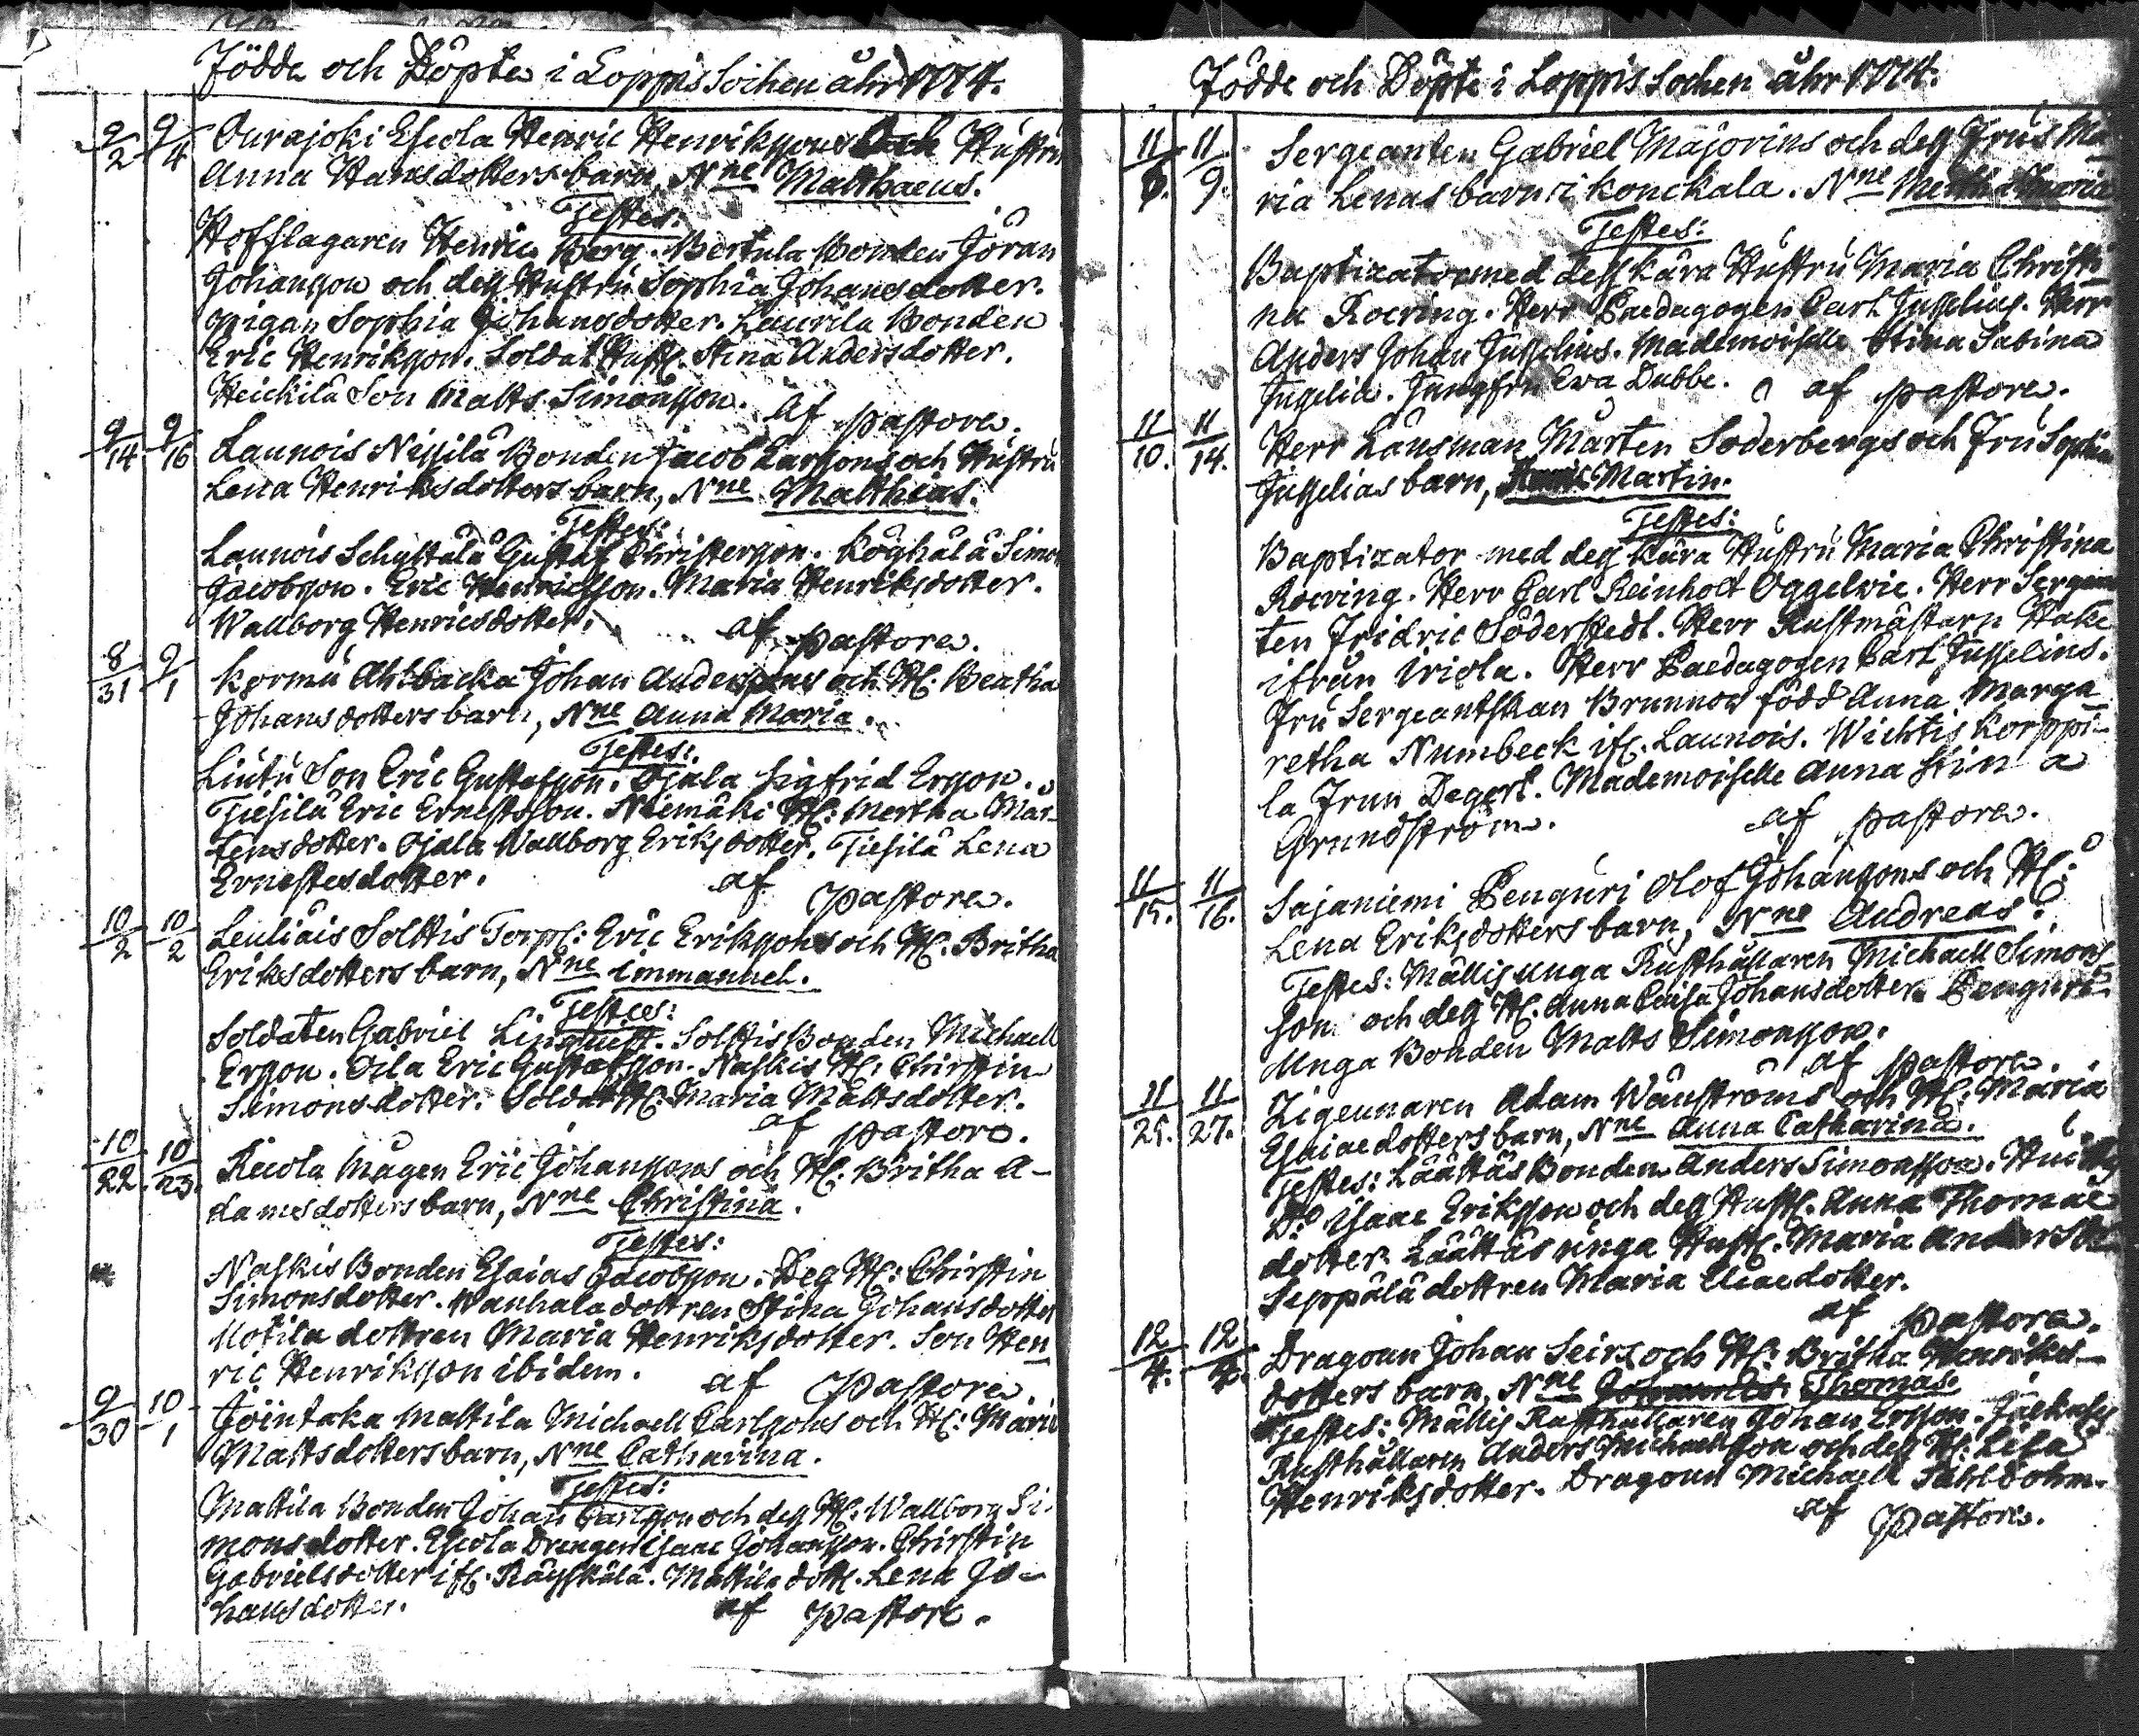 Födde och Döpte i Loppis Sochen åhr 1774.
9/2 9/4 Ourajoki Escola Henric Henrikssons Och Hustru
Anna Hansdotters barn, Nne Matthaeus.
Testes:
Hofslagaren Henric Berg. Bertula Bonden Jöran
Johansson och deß Hustru Sophia Johansdotter.
Pigan Sophia Johansdotter. Laurila Bonden
Eric Henriksson. Soldat Hust. Stina Andersdotter.
Heickilä Son Matts Simonsson. af Pastore.
9/14 9/16 Launois Nissilä Bonden Jacob Larssons och Hustru
Lena Henriksdotters barn, Nne Matthias.
Testes:
Launois Gustaf Christersson. Simon
Jacobsson. Eric Henricsson. Maria Henriksdotter.
Wallborg Henricsdotter. af Pastore.
8/31 9/1 Kormu Ahlbacka Johan Anderssons och H: Beatha
Johansdotters barn, Nne Anna Maria.
Testes:
Liutu Son Eric Gustafsson. Ojala Sigfrid Ersson.
Tiesilä Eric Ernestsson. Niemäki H: Mertha Mar-
tensdotter. Ojala Wallborg Eriksdotter. Tiesilä Lena
Ernestesdotter. af Pastore.
10/2 10/2 Leuliäis Solttis Torp: Eric Erikssons och H: Britha
Eriksdotters barn, Nne Immanuel.
Testes:
Soldaten Gabriel Linquist. Solttis Bonden Michaell
Ersson. Oila Eric Gustafsson. Naskis H: Chirstin
Simonsdotter. Soldat H: Maria Mattsdotter.
af Pastore.
10/22 10/23 Recola Mågen Eric Johanssons och H: Britha A-
damsdotters barn, Nne Christina.
Testes:
Naskis Bonden Esaias Jacobsson. Deß H: Chirstin
Simonsdotter. Wanhala dottren Stina Johansdotter
Uotila dottren Maria Henriksdotter. Son Hen
ric Henriksson ibidem. af Pastore.
9/30 10/1 Jointaka Mattila Michaell Carlssons och H: Maria
Mattsdotters barn, Nne Catharina.
Testes:
Mattila Bonden Johan Carlsson och deß H: Wallborg Si-
monsdotter. Escola Drengen Isaac Johansson. Chirstin
Gabrielsdotter if: Räyskälä. Mattila dott: Lena Jo-
hansdotter. af Pastore.
Födde och Döpte i Loppis Sochen åhr 1774.
11/6. 11/9. Sergeanten Gabriel Majorins och deß Frus Ma
ria Lenas barn i Konckala. Nne Mertha Maria
Testes:
Baptizator med deß kära Hustru Maria Christi
na Roering. Herr Paedagogen Carl Jusselius. Herr
Anders Johan Jusselius. Mademoiselle Stina Sabina
Juselia. Jungfru Ewa Dubbe. af Pastore.
11/10. 11/14. Herr Länsman Mårten Söderbergs och Fru Sophia
Jusselias barn, Martin.
Testes:
Baptizator med deß kära Hustru Maria Christina
Roering. Herr Carl Reinholt Oggelwie. Herr Sergean
ten Fridric Söderstedt. Herr Rustmästarn Hake
ifrån Wiola. Herr Paedagogen Carl Jusselius.
Fru Sergeantskan Brunnow född Anna Marga
retha Numbeck if: Launois. Wichtis Korppi-
la Frun Degert. Mademoiselle Anna Stina
Grundström. af Pastore.
11/15. 11/16. Sajaniemi Penguri Olof Johanssons och H:
Lena Eriksdotters barn, Nne Andreas.
Testes: Mällis Unga Rusthållaren Michaell Simons
son och deß H: Anna Caisa Johansdotter. Penguri
Unga Bonden Matts Simonsson.
af Pastore.
11/25. 11/27. Zigeunaren Adam Wänströms och H: Maria
Esaiaedotters barn, Nne Anna Catharina.
Testes: Läättäs Bonden Anders Simonsson.
Do Isaac Eriksson och deß Hust: Anna Thomae
dotter. Läättäs unga Hust: Maria
Seppälä dottren Maria Eliaedotter.
af Pastore.
12/4. 12/4. Dragoun Johan Seirs och H: Britha Henriks-
dotters barn, Nne Johannes Thomas.
Testes: Mällis Rusthållaren Johan Ersson.
Rusthållaren Anders Michaelsson och deß H: Lisa
Henriksdotter. Dragoun Michaell Sahlbohm.
af Pastore.